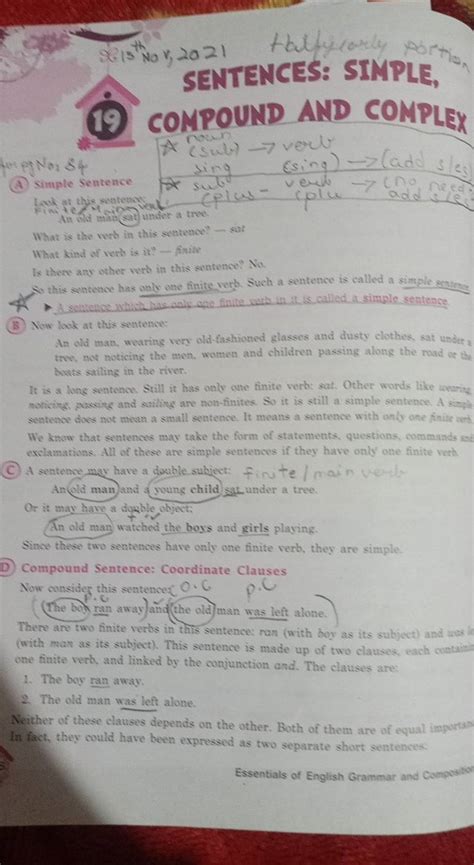 13th Nov, 2021 Halfyearly portion
SENTENCES: SIMPLE,
19 COMPOUND AND COMPLEX
noun
(sub) → verb
sing (sing) → (add s/es)
pg No, 84
sub - verb → (no need
plu add s/es
A Simple Sentence
Look at this sentence:
Finite/Main verb
An old man sat under a tree.
What is the verb in this sentence? — sat
What kind of verb is it? — finite
Is there any other verb in this sentence? No.
So this sentence has only one finite verb. Such a sentence is called a simple sentence
▶ A sentence which has only one finite verb in it is called a simple sentence.
B Now look at this sentence:
An old man, wearing very old-fashioned glasses and dusty clothes, sat under a
tree, not noticing the men, women and children passing along the road or the
boats sailing in the river.
It is a long sentence. Still it has only one finite verb: sat. Other words like wearing,
noticing, passing and sailing are non-finites. So it is still a simple sentence. A simple
sentence does not mean a small sentence. It means a sentence with only one finite verb.
We know that sentences may take the form of statements, questions, commands and
exclamations. All of these are simple sentences if they have only one finite verb.
C A sentence may have a double subject: finite/main verb
An old man and a young child sat under a tree.
Or it may have a double object:
An old man watched the boys and girls playing.
Since these two sentences have only one finite verb, they are simple.
D Compound Sentence: Coordinate Clauses
Now consider this sentence: O.C P.C
P.C
The boy ran away and the old man was left alone.
There are two finite verbs in this sentence: ran (with boy as its subject) and was
(with man as its subject). This sentence is made up of two clauses, each containi
one finite verb, and linked by the conjunction and. The clauses are:
1. The boy ran away.
2. The old man was left alone.
Neither of these clauses depends on the other. Both of them are of equal importan
In fact, they could have been expressed as two separate short sentences:
Essentials of English Grammar and Composition